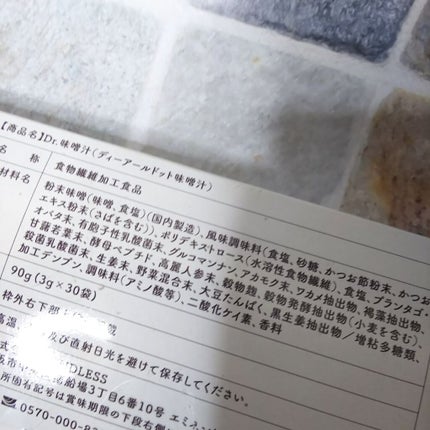 【商品名】Dr.味噌汁(ディーアールドット味噌汁)
名 称 食物繊維加工食品
材料名 粉末味噌(味噌、食塩)(国内製造)、風味調味料(食塩、砂糖、かつお節粉末、かつお
エキス粉末(さばを含む))、ポリデキストロース(水溶性食物繊維)、食塩、プランタゴ・
オバタ末、有胞子性乳酸菌末、グルコマンナン、アカモク末、ワカメ抽出物、褐藻抽出物、
甘藷若葉末、酵母ペプチド、高麗人参末、穀物麹、穀物発酵抽出物(小麦を含む)、
殺菌乳酸菌末、生姜末、野菜混合末、大豆たんぱく、黒生姜抽出物/増粘多糖類、
加工デンプン、調味料(アミノ酸等)、二酸化ケイ素、香料
90g(3g×30袋)
枠外右下部
高温 及び直射日光を避けて保存してください。
DLESS
北船場3丁目6番10号 エミネン
所固有記号は賞味期限の下段右側
0570-000-8